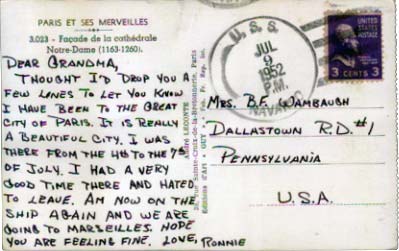 PARIS ET SES MERVEILLES
3.023 - Façade de la cathédrale
Notre-Dame (1163-1260).
DEAR GRANDMA,
THOUGHT I'D DROP YOU A
FEW LINES TO LET YOU KNOW
I HAVE BEEN TO THE GREAT
CITY OF PARIS. IT IS REALLY
A BEAUTIFUL CITY. I WAS
THERE FROM THE 4TH TO THE 7TH
OF JULY. I HAD A VERY
GOOD TIME THERE AND HATED
TO LEAVE. AM NOW ON THE
SHIP AGAIN AND WE ARE
GOING TO MARSEILLES. HOPE
YOU ARE FEELING FINE. LOVE, RONNIE
Sainte-Croix-de-la-Bretonnerie, Paris
Editions d'Art "GUY"
U. S. S.
JUL
9
1952
P.M.
UNITED STATES
POSTAGE
3 CENTS 3
MRS. B.F. WAMBAUGH
DALLASTOWN R.D. #1
PENNSYLVANIA
U.S.A.